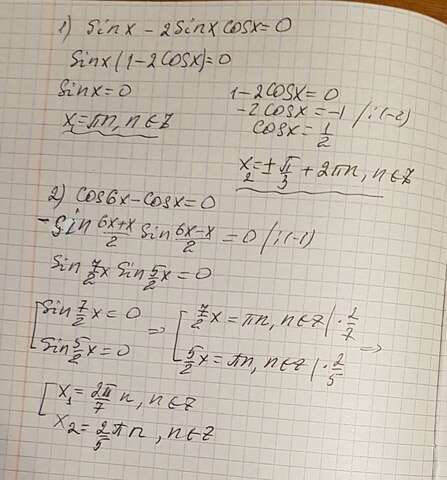 1) Sinx - 2Sinx cosx = 0
Sinx(1-2cosx)=0
Sinx=0
x₁=πn, n∈Z
1-2cosx=0
-2cosx=-1 /:(-2)
cosx=1/2
x₂=±π/3+2πn, n∈Z
2) cos6x-cosx=0
-Sin (6x+x)/2 Sin (6x-x)/2 = 0 /:(-1)
Sin 7/2 x Sin 5/2 x = 0
[Sin 7/2 x = 0
Sin 5/2 x = 0
=> [7/2 x = πn, n∈Z | · 2/7
5/2 x = πn, n∈Z | · 2/5 =>
[x₁ = 2π/7 n, n∈Z
x₂ = 2/5 πn, n∈Z